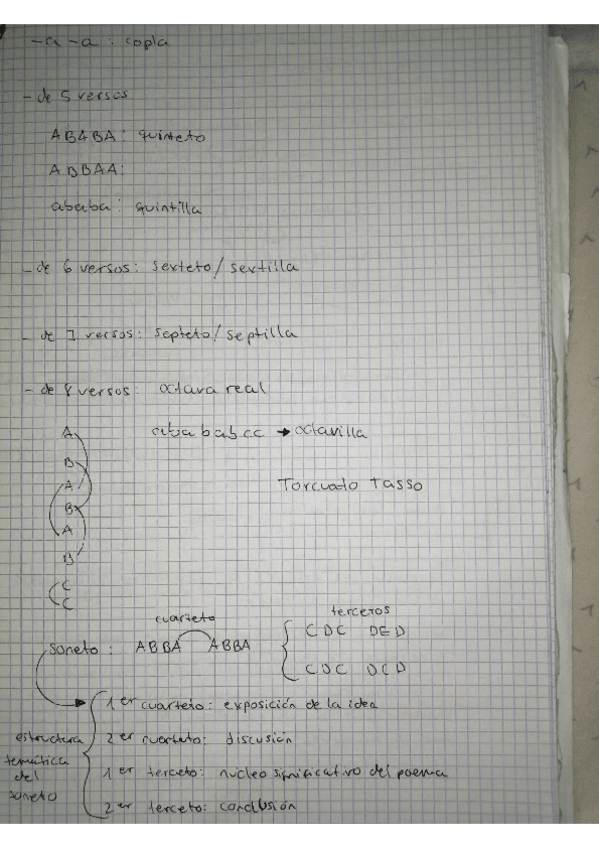 -a-a: copla
- de 5 versos
ABABA: quinteto
ABBAA:
ababa: quintilla
- de 6 versos: sexteto/sextilla
- de 7 versos: septeto/septilla
- de 8 versos: octava real
A
ababab cc → octavilla
B
A
Torcuato Tasso
B
A
B
C
C
cuarteto
terceros
soneto: ABBA ABBA
CDC DED
CDC DCD
1er cuarteto: exposición de la idea
estructura temática del soneto
2er cuarteto: discusión
1er terceto: núcleo significativo del poema
2er terceto: conclusión